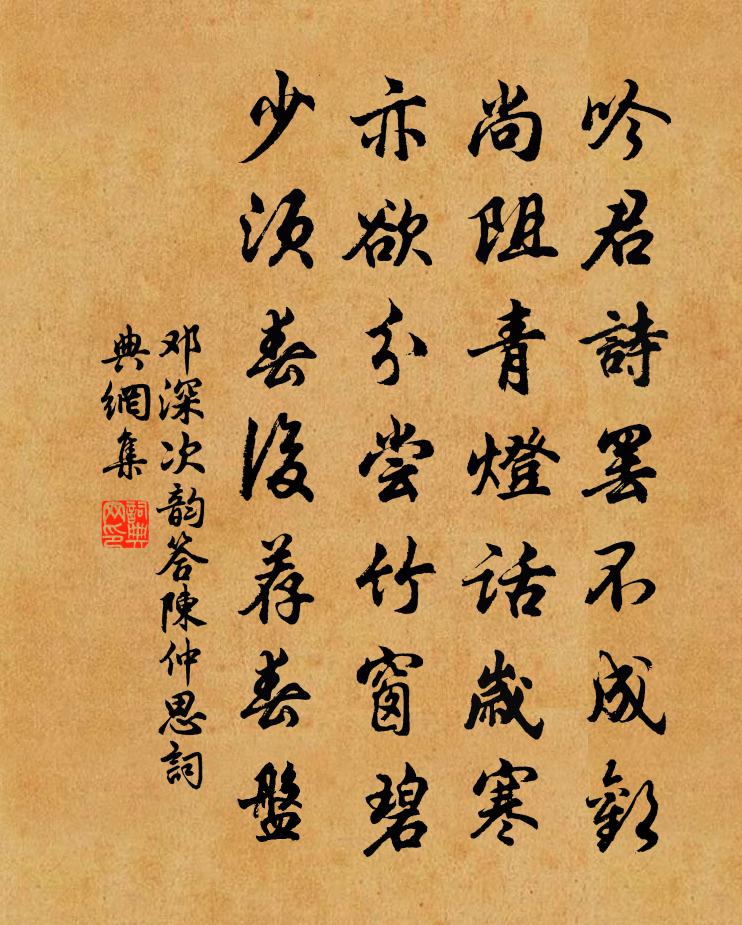 吟君詩罢不成歡
尚阻青燈話歲寒
亦欲分尝竹窗碧
少须春後荐春盤
邓深次韵答陳仲思詞
典網集
詞典
网印